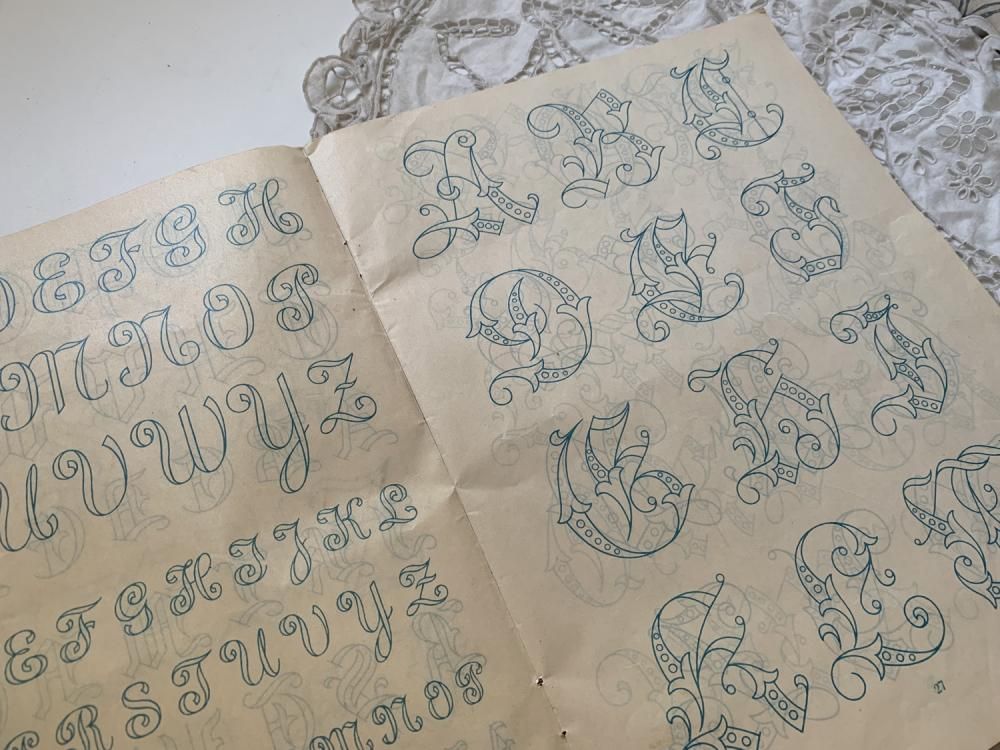 D E F G H
M N O P
U V W Y Z
E F G H I J K L
R S T U V Y Z
M N O P
A B C
D E F
G H I
K L M
27